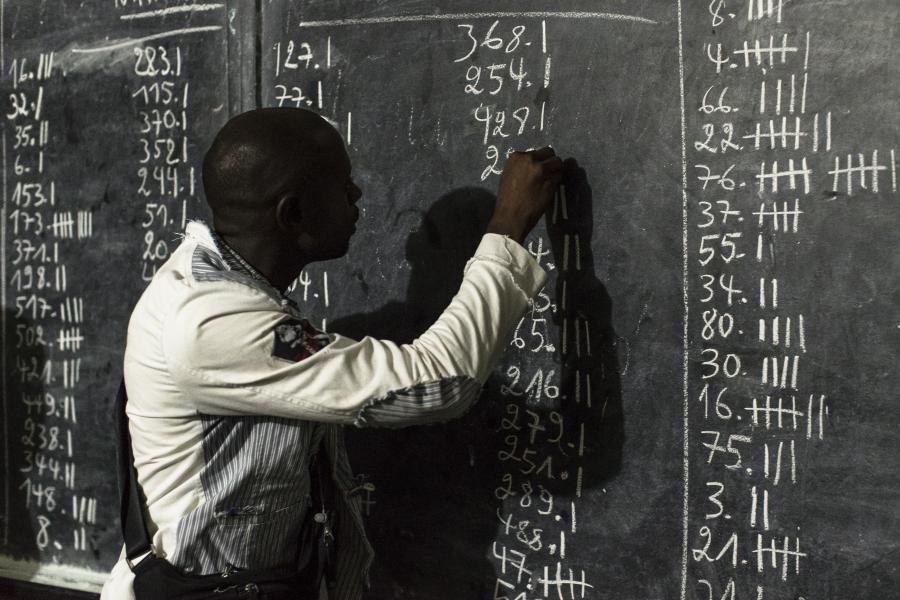 16. |||
32. |
35. ||
6. |
153. |
173. 卌 ||||
371. |
198. ||
517. ||||
502. 卌
421. |||
449. ||
238. |
344. ||
148. ||||
8. ||
283. |
115. |
370. |
352. |
244. |
51. |
20
127. |
77. |
368. |
254. |
428. |
65.
216.
279. |
251. |
289.
488. |
47.
8. ||||
4. 卌 |
66. ||||
22. 卌 ||
76. 卌 卌 |
37. 卌
55. |
34. ||
80. ||||
30. ||||
16. 卌 ||
75. |||
3. ||
21. 卌